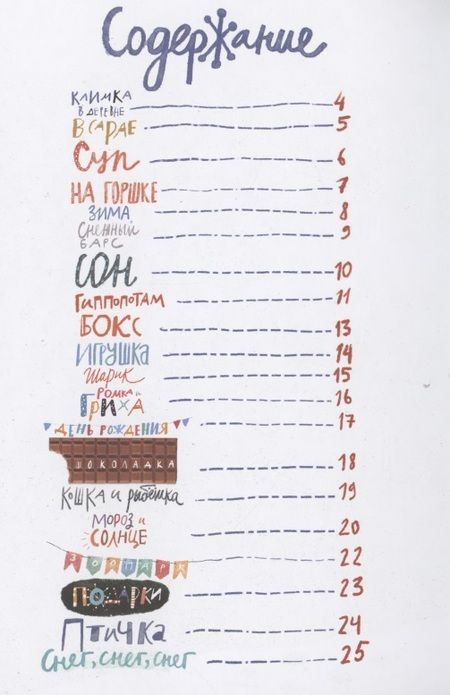 Содержание
КЛИМКА
В ДЕРЕВНЕ 4
В САРАЕ 5
Суп 6
НА ГОРШКЕ 7
ЗИМА 8
СНЕЖНЫЙ
БАРС 9
СОН 10
ГИППОПОТАМ 11
БОКС 13
ИГРУШКА 14
Шарик 15
РОМКА И
ГРИХА 16
ДЕНЬ РОЖДЕНИЯ 17
ШОКОЛАДКА 18
Кошка и рыбёшка 19
МОРОЗ И
СОЛНЦЕ 20
ЗООПАРК 22
ПОДАРКИ 23
Птичка 24
Снег, снег, снег 25